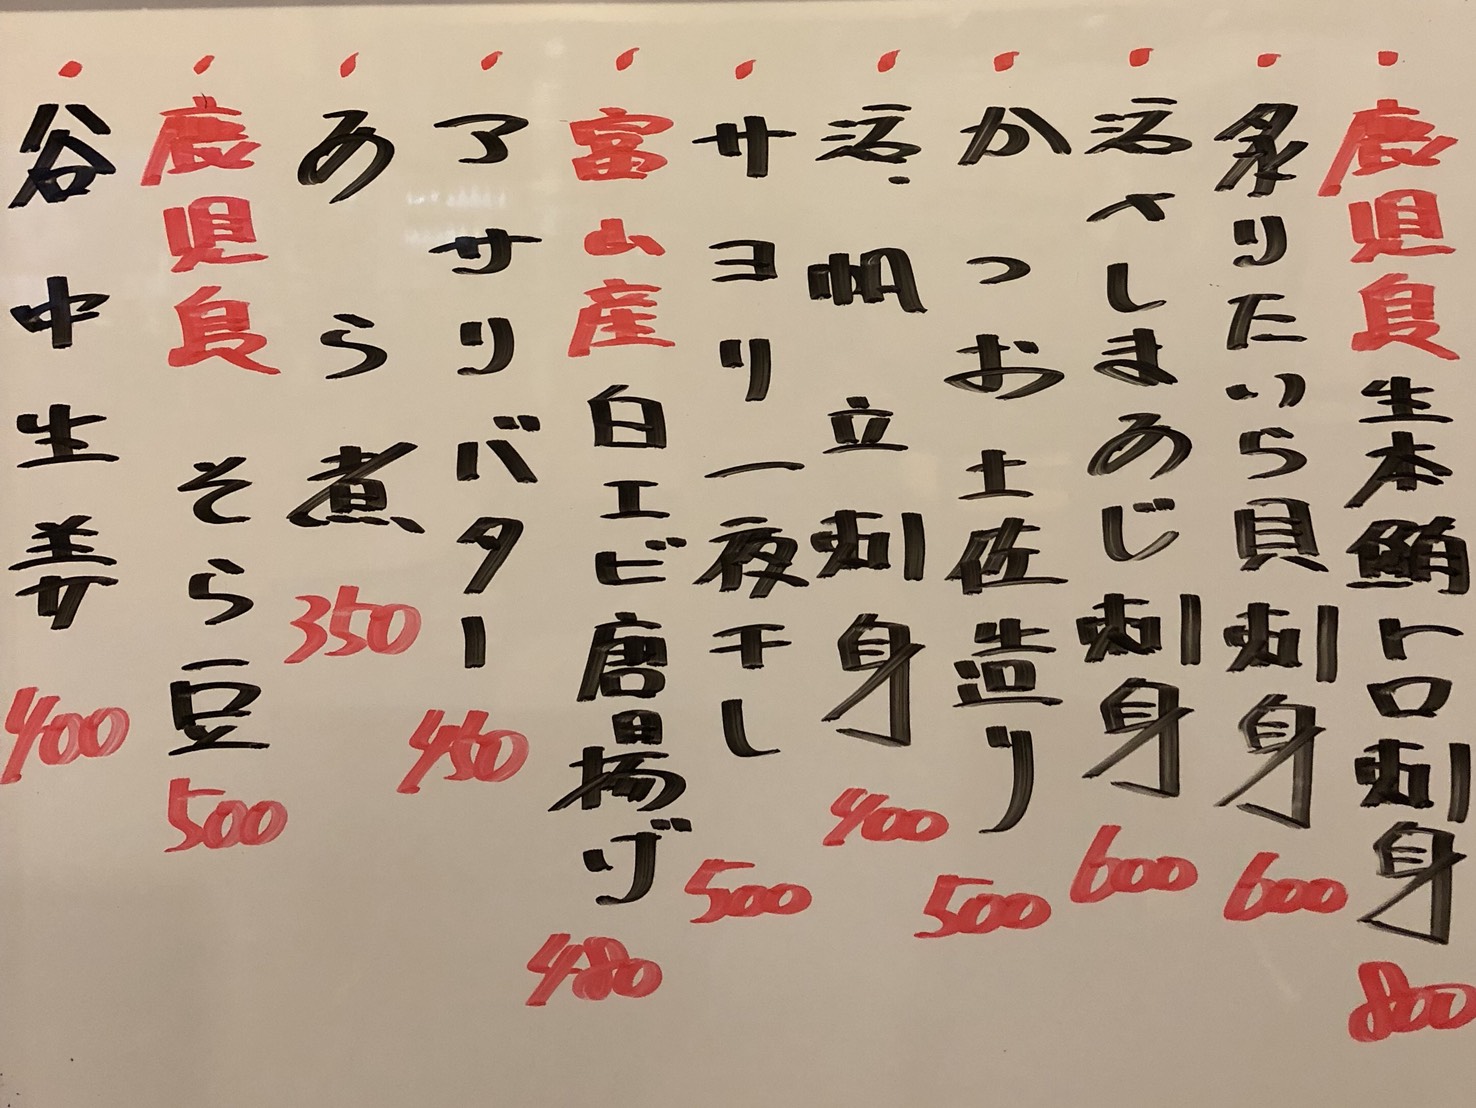 ・鹿児島生本鮪トロ刺身 800
・炙りたいら貝刺身 600
・活〆しまあじ刺身 600
・かつお土佐造り 500
・活帆立刺身 400
・サヨリ一夜干し 500
・富山産白エビ唐揚げ 480
・アサリバター 450
・あら煮 350
・鹿児島そら豆 500
・谷中生姜 400